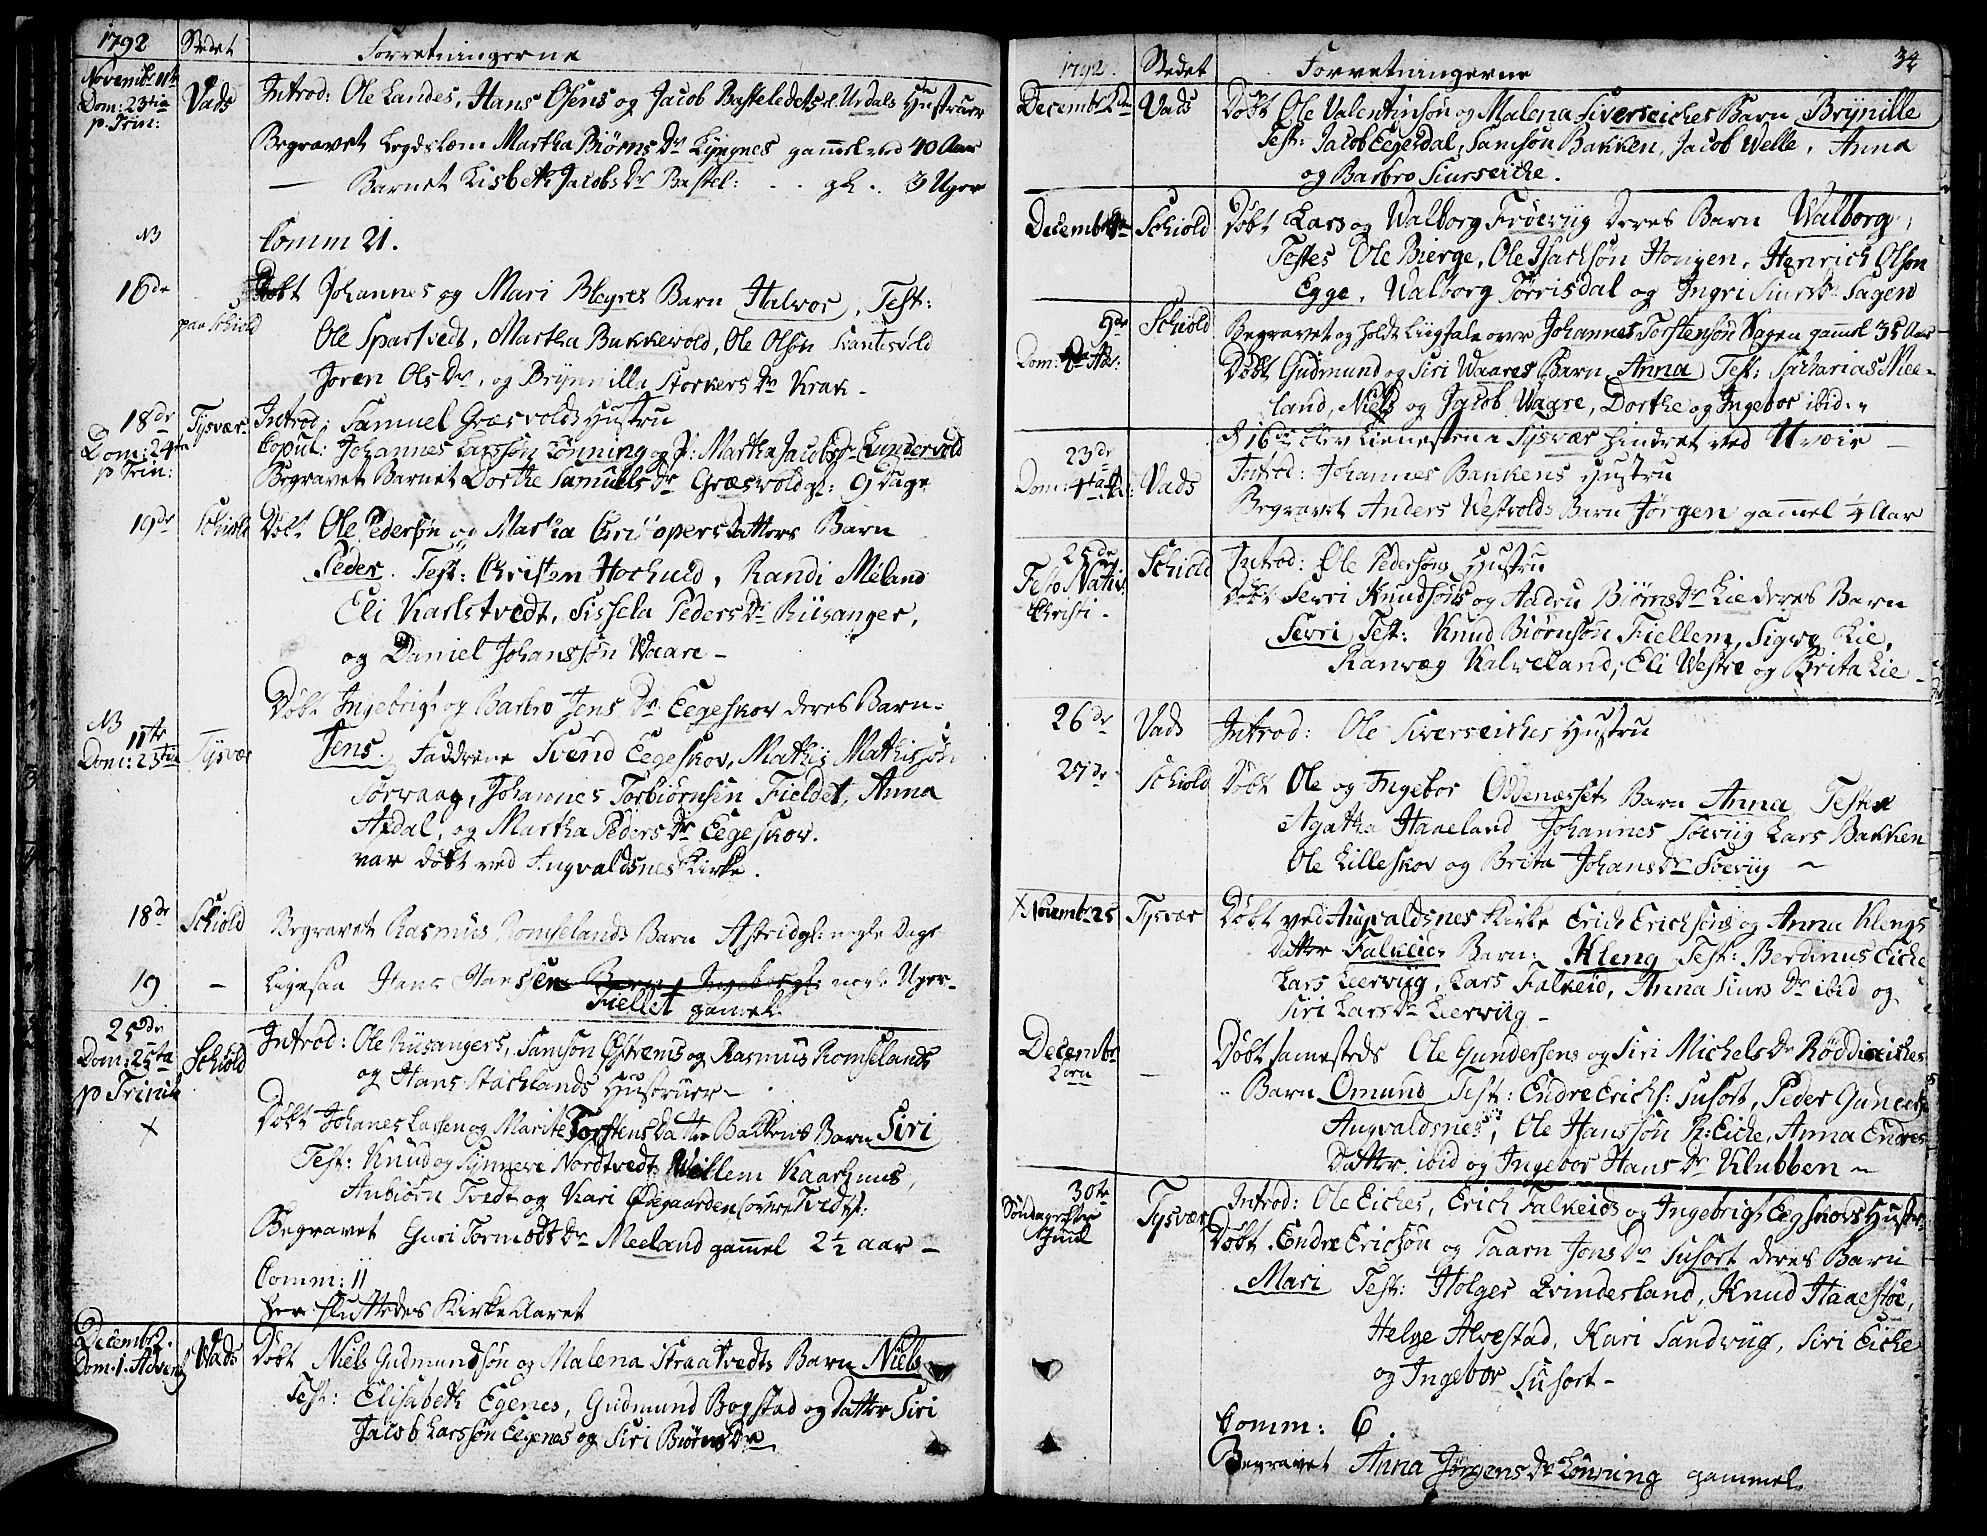 1792 Stedet Forretningerne
Novembr 11te Dom: 23tia p. Trin: Vads Introd: Ole Landes, Hans Osens og Jacob Basteledets Urdals Hustruer
Begravet Legdslem Martha Biørns Dr Lyngnes gamel ved 40 Aar
— Barnet Lisbeth Jacobs Dr Bastel: . . gl . 3 Uger
NB Comm 21.
16de paa Schiold Døbt Johannes og Mari Bleyres Barn Halvor, Test:
Ole Spartvedt, Martha Bukkevold, Ole Olsøn Svantesvold
Joren Ols Dr, og Brynnilla Storkers Dr Krak -
18de Dom: 24 p Trin: Tysvær Introd: Samuel Græsvolds Hustru
Copul: Johannes Larssøn Lønning og P: Martha Jacobsdr Lundervold
Begravet Barnet Dorthe Samuels Dr Græsvold gl: 9 Dage
19de Schiold Døbt Ole Pedersøn og Martha Christophersdatters Barn
Peder. Test: Christen Hochuld, Randi Meland
Eli Karlstvedt, Sissela Peders Dr Riisanger,
og Daniel Johanssøn Waare -
Døbt Ingebrigt og Barbro Jens Dr Eegeskov deres Barn
NB 11te Dom: 23tia Tysvær Jens. Faddrene Svend Eegeskov, Mathis Mathissøn
Sørvaag, Johannes Torbiørnsen Fieldet, Anna
Apdal, og Martha Peders Dr Eegeskov.
var døbt ved Augvaldsnes Kirke.
18de Schiold Begravet Rasmus Romselands Barn Astrid gl: nogle Dage
19 - Ligesaa Hans Hansen nogle Uger
Fiellet gamel.
25de Dom: 25ta p Trinit Schiold Introd: Ole Riisangers, Samson Østrems og Rasmus Romselands
og Hans Stachlands Hustruer -
× Døbt Johanes Lassen og Marite Torstens Datter Bakkens Barn Siri
Test: Knud og Synneve Nordtvedt, Willem Kaarhuus,
Anbiørn Tvedt og Kari Ødegaarden Tvedt:
Begravet Guri Tormodt Dr Meeland gamel 2½ aar -
Comm: 11
her sluttedes Kirke Aaret
Decemb 2. Dom. 1. Advent Vads Døbt Niels Gudmundsøn og Malena Straatvedts Barn Niels
Test: Elisabeth Egenes, Gudmund Bogstad og Datter Siri
Jacob Larssøn Eegenes og Siri Biørns Dr
1792. Stedet Forretningerne 34
Decembr 2den Vads Døbt Ole Valentinsøn og Malena Siverseiches Barn Brynille
Test: Jacob Eegesdal, Samson Bakken, Jacob Welle, Anna
og Barbro Siurseiche.
Decembr Schiold Døbt Lars og Walborg Frøeviig deres Barn Walborg,
Testes Ole Bierge, Ole Isachsøn Hougen, Henrich Olson
Egge, Walborg Tørrisdal og Ingri Siurs Dr Sagen
9de Dom: 2da Adv: Schiold Begravet og holdt Liigtale over Johannes Torstensøn Sagen gamel 35 Aar
Døbt Gudmund og Siri Waares Barn Anna Test: Sacharias Mee-
land, Niels og Jacob Waare, Dorthe og Ingebor ibid:
d 16de blev tienesten i Tysvær hindret ved Uveir -
23de Dom: 4ta Adv: Vads Introd: Johannes Bakkens Hustru
Begravet Anders Westvolds Barn Jørgen gammel ¼ Aar
25de Festo Nativ: Christi. Schiold Introd: Ole Pedersøns Hustru
Døbt Sevri Knudsøns og Aadru Biørns Dr Lie deres Barn
Sevri Test: Knud Biørnsøn Fiellem, Sigwe Lie,
Ranvæg Kalveland, Eli Westre og Brita Lie -
26de Vads Introd: Ole Siverseiches Hustru
27de Schiold Døbt Ole og Ingebor Oddenæssets Barn Anna Testes
Agatha Haaeland Johannes Soeviig Lars Bakken
Ole Lilleskov og Brita Johans Dr Soeviig ~
× Novembr 25 Tysvær Døbt ved Augvaldsnes Kirke Erich Erichsøns og Anna Klengs
Datter Falkeies Barn: Kleng Test: Berdinus Eiche
Lars Leerviig, Lars Falkeid, Anna Siurs Dr ibid og
Siri Lars Dr Leerviig -
Decembr 2den — Døbt samesteds Ole Gundersens og Siri Michels Dr Røddiseiches
Barn Omund Test: Endre Erichs: Susort, Peder Gunders:
Augvaldsnes, Ole Hanssøn R:Eiche, Anna Endres
Datter ibid og Ingebor Hans Dr Klubben ~
30te Søndag efter Juul Tysvær Introd: Ole Eiches, Erich Falkeids og Ingebrigt Eegskovs Hustr.
Døbt Endre Ericsøn og Taarn Jons Dr Susort deres Barn
Mari Test: Holger Qvindesland, Knud Haaestøe,
Helge Alvestad, Kari Sandviig, Siri Eiche
og Ingebor Susort -
Comm: 6.
Begravet Anna Jørgens Dr Lønning gammel.